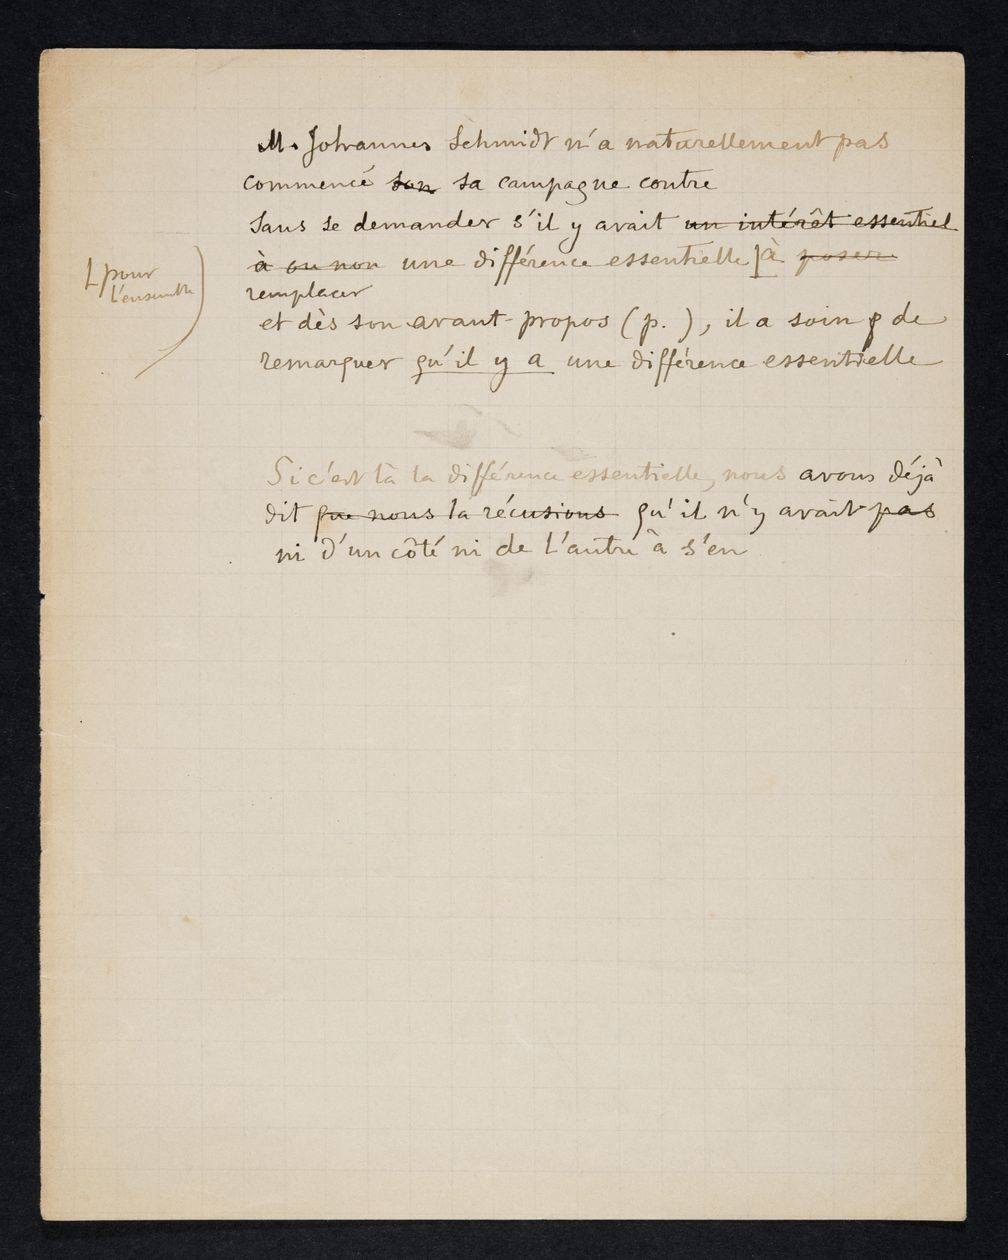 M. Johannes Schmidt n'a naturellement pas
commencé son sa campagne contre
sans se demander s'il y avait un intérêt essentiel
à ou non une différence essentielle] à poser
[pour
l'ensemble)
remplacer
et dès son avant-propos (p. ), il a soin q de
remarquer qu'il y a une différence essentielle
Si c'est là la différence essentielle, nous avons déjà
dit que nous la récusions qu'il n'y avait pas
ni d'un côté ni de l'autre à s'en